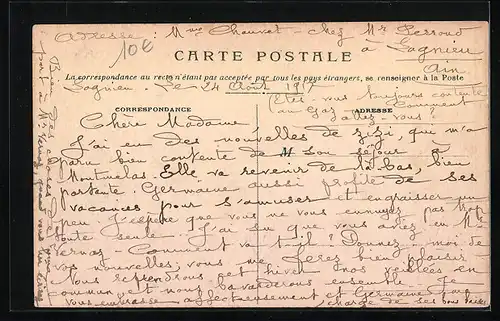 Adresse : Mme Chauvet - chez Mr Perroud
à Lagnieu
Ain
10€
CARTE POSTALE
La correspondance au recto n'étant pas acceptée par tous les pays étrangers, se renseigner à la Poste
Lagnieu. Le 24 Août 1917
Etes-vous toujours contente
au gaz comment
allez-vous ?
CORRESPONDANCE
ADRESSE
Chère Madame
J'ai eu des nouvelles de Zizi, qui m'a
paru bien contente de son séjour à
Elle va revenir de là-bas, bien
portante. Germaine aussi profite de ses
vacances pour s'amuser et engraisser un
peu. J'espère que vous ne vous ennuyez pas trop
toute seule. J'ai su que vous avez eu Mr
Vernay Comment va-t-il ? Donnez-moi de
vos nouvelles, vous me ferez bien plaisir
Nous reprendrons cet hiver nos veillées en
commun et nous bavarderons ensemble. Je
vous embrasse affectueusement et Germaine
charge de ses bons baisers
Bien des choses
part à Mr Vernay, quand vous lui